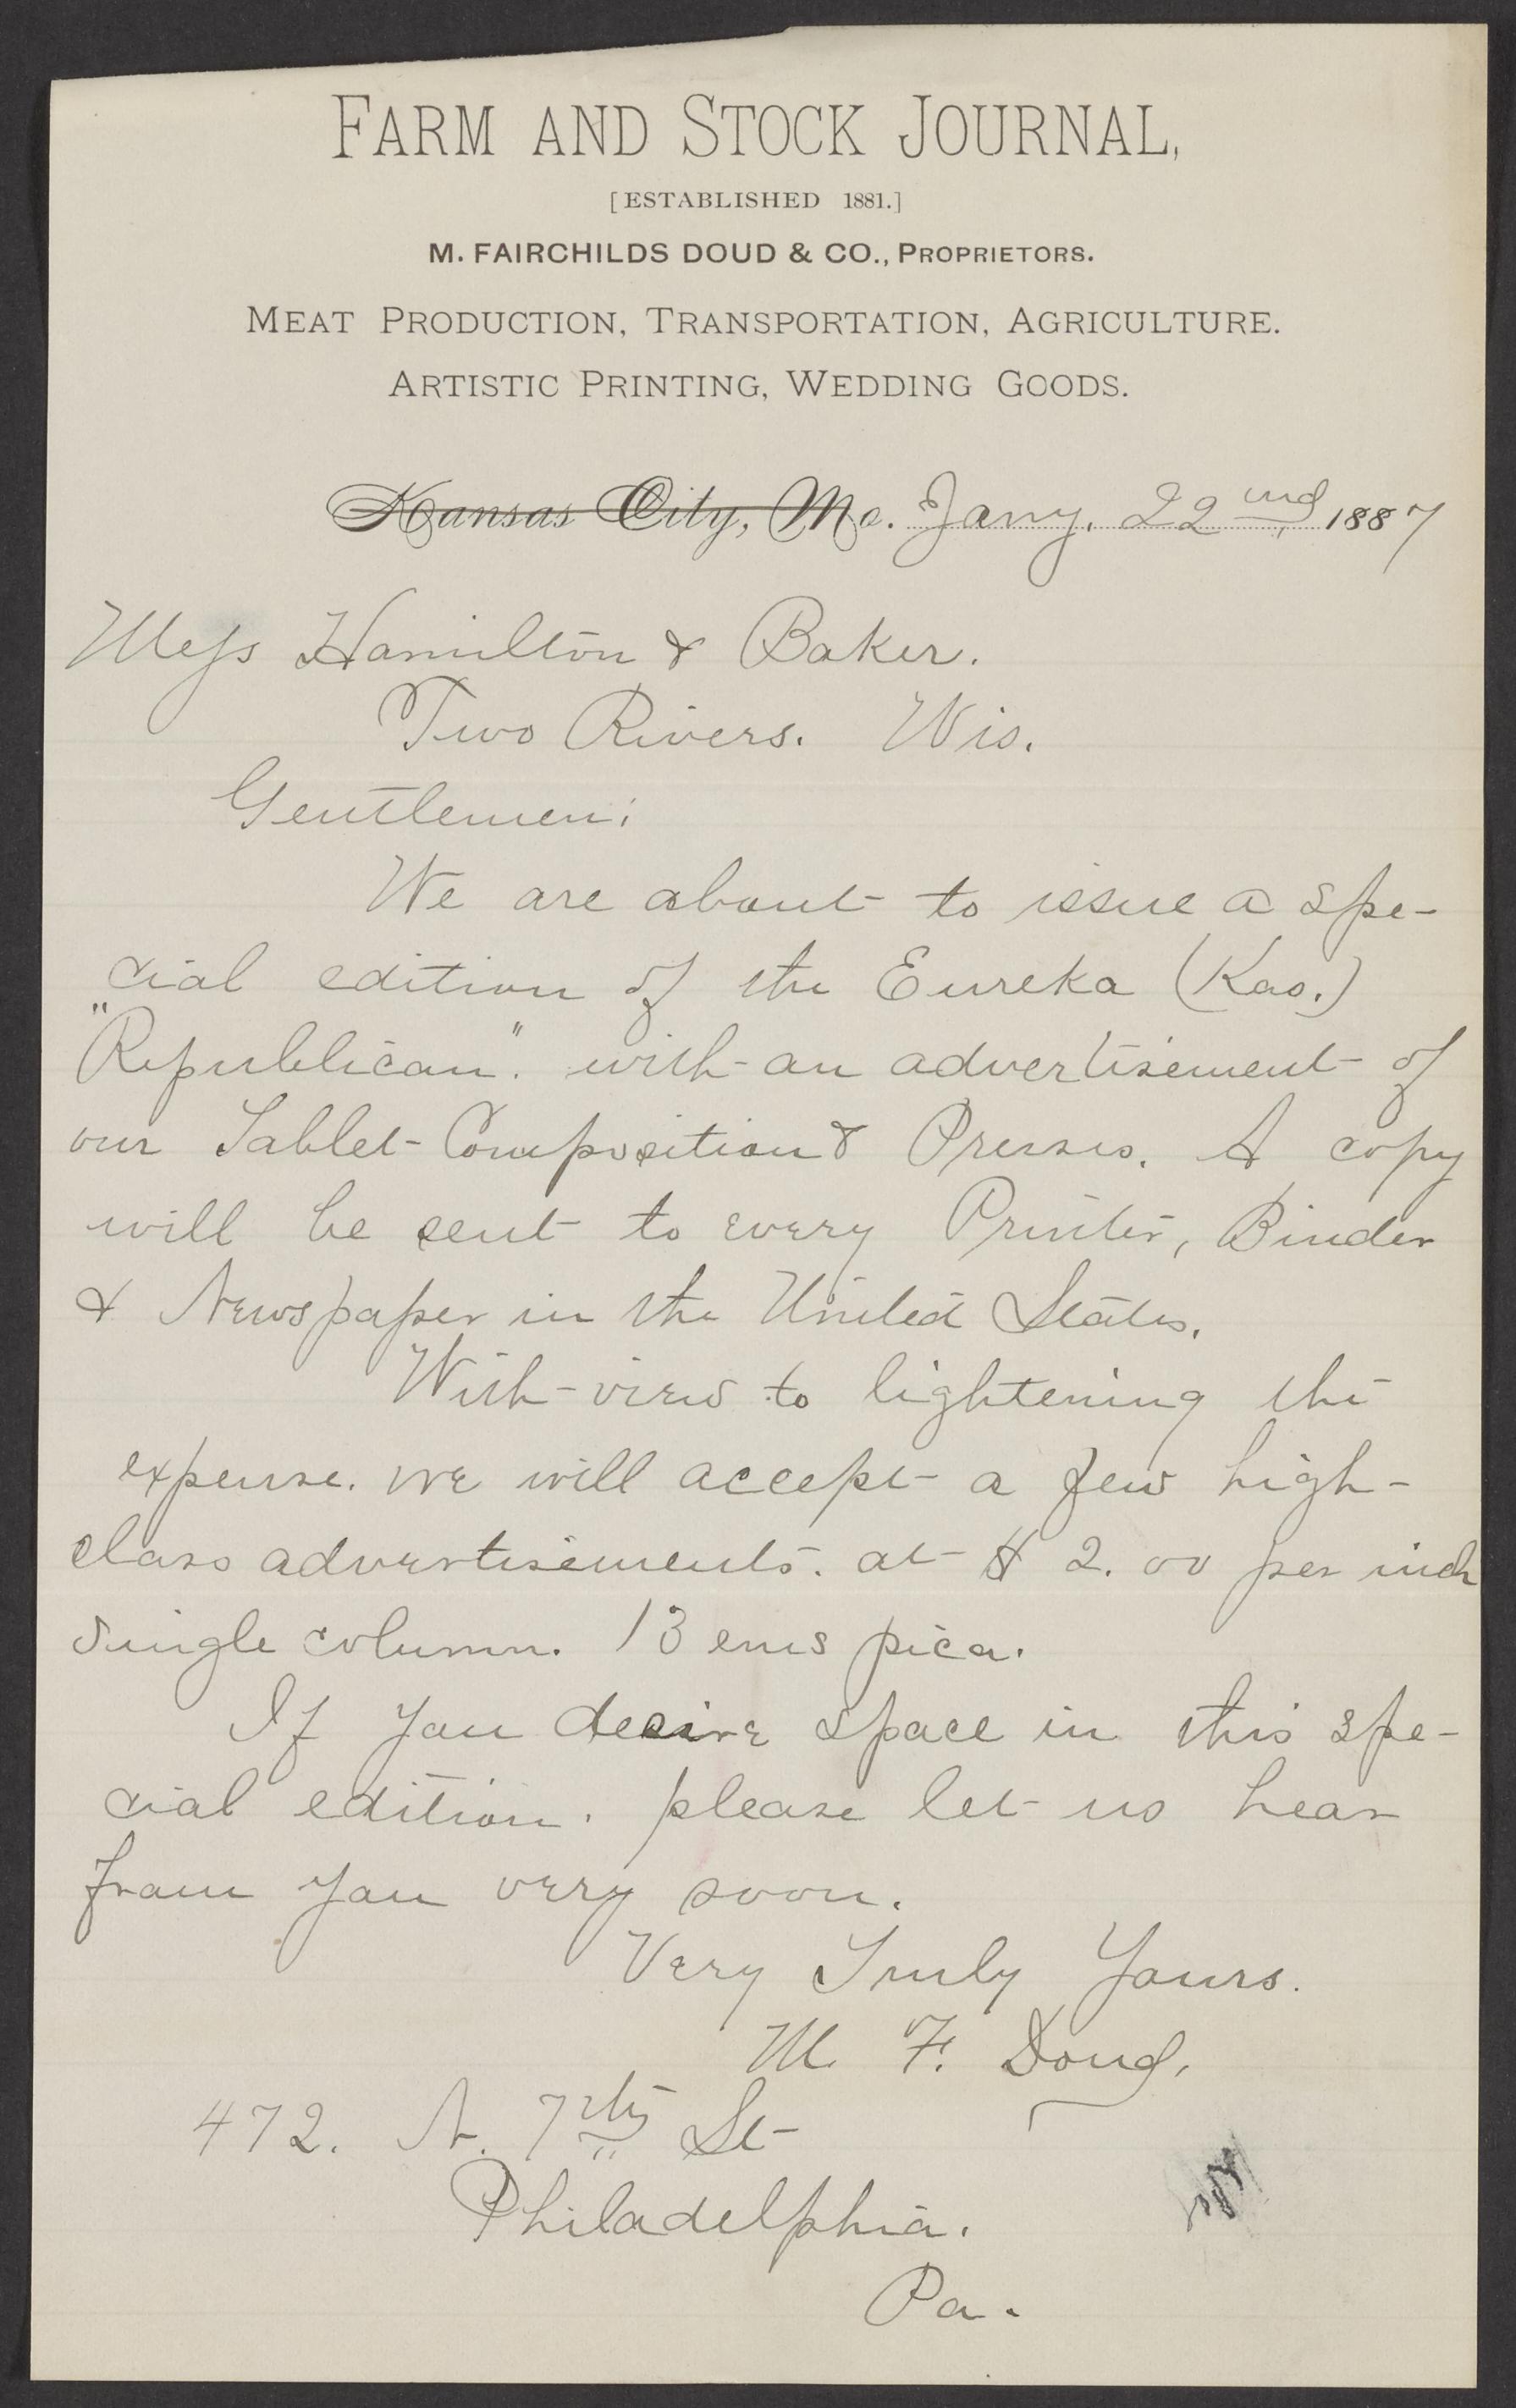 FARM AND STOCK JOURNAL,
[ESTABLISHED 1881.]
M. FAIRCHILDS DOUD & CO., PROPRIETORS.
MEAT PRODUCTION, TRANSPORTATION, AGRICULTURE.
ARTISTIC PRINTING, WEDDING GOODS.
Kansas City, Mo. Jany. 22nd 1887
Mess Hamilton & Baker.
Two Rivers. Wis.
Gentlemen:
We are about to issue a spe-
cial edition of the Eureka (Kas.)
"Republican". with an advertisement of
our Tablet Composition & Presses. A copy
will be sent to every Printer, Binder
& Newspaper in the United States.
With view to lightening the
expense. we will accept a few high-
class advertisements. at $ 2.00 per inch
single column. 13 ems pica.
If you desire space in this spe-
cial edition. please let us hear
from you very soon.
Very Truly Yours.
M. F. Doud.
472. N. 7th St
Philadelphia.
Pa.